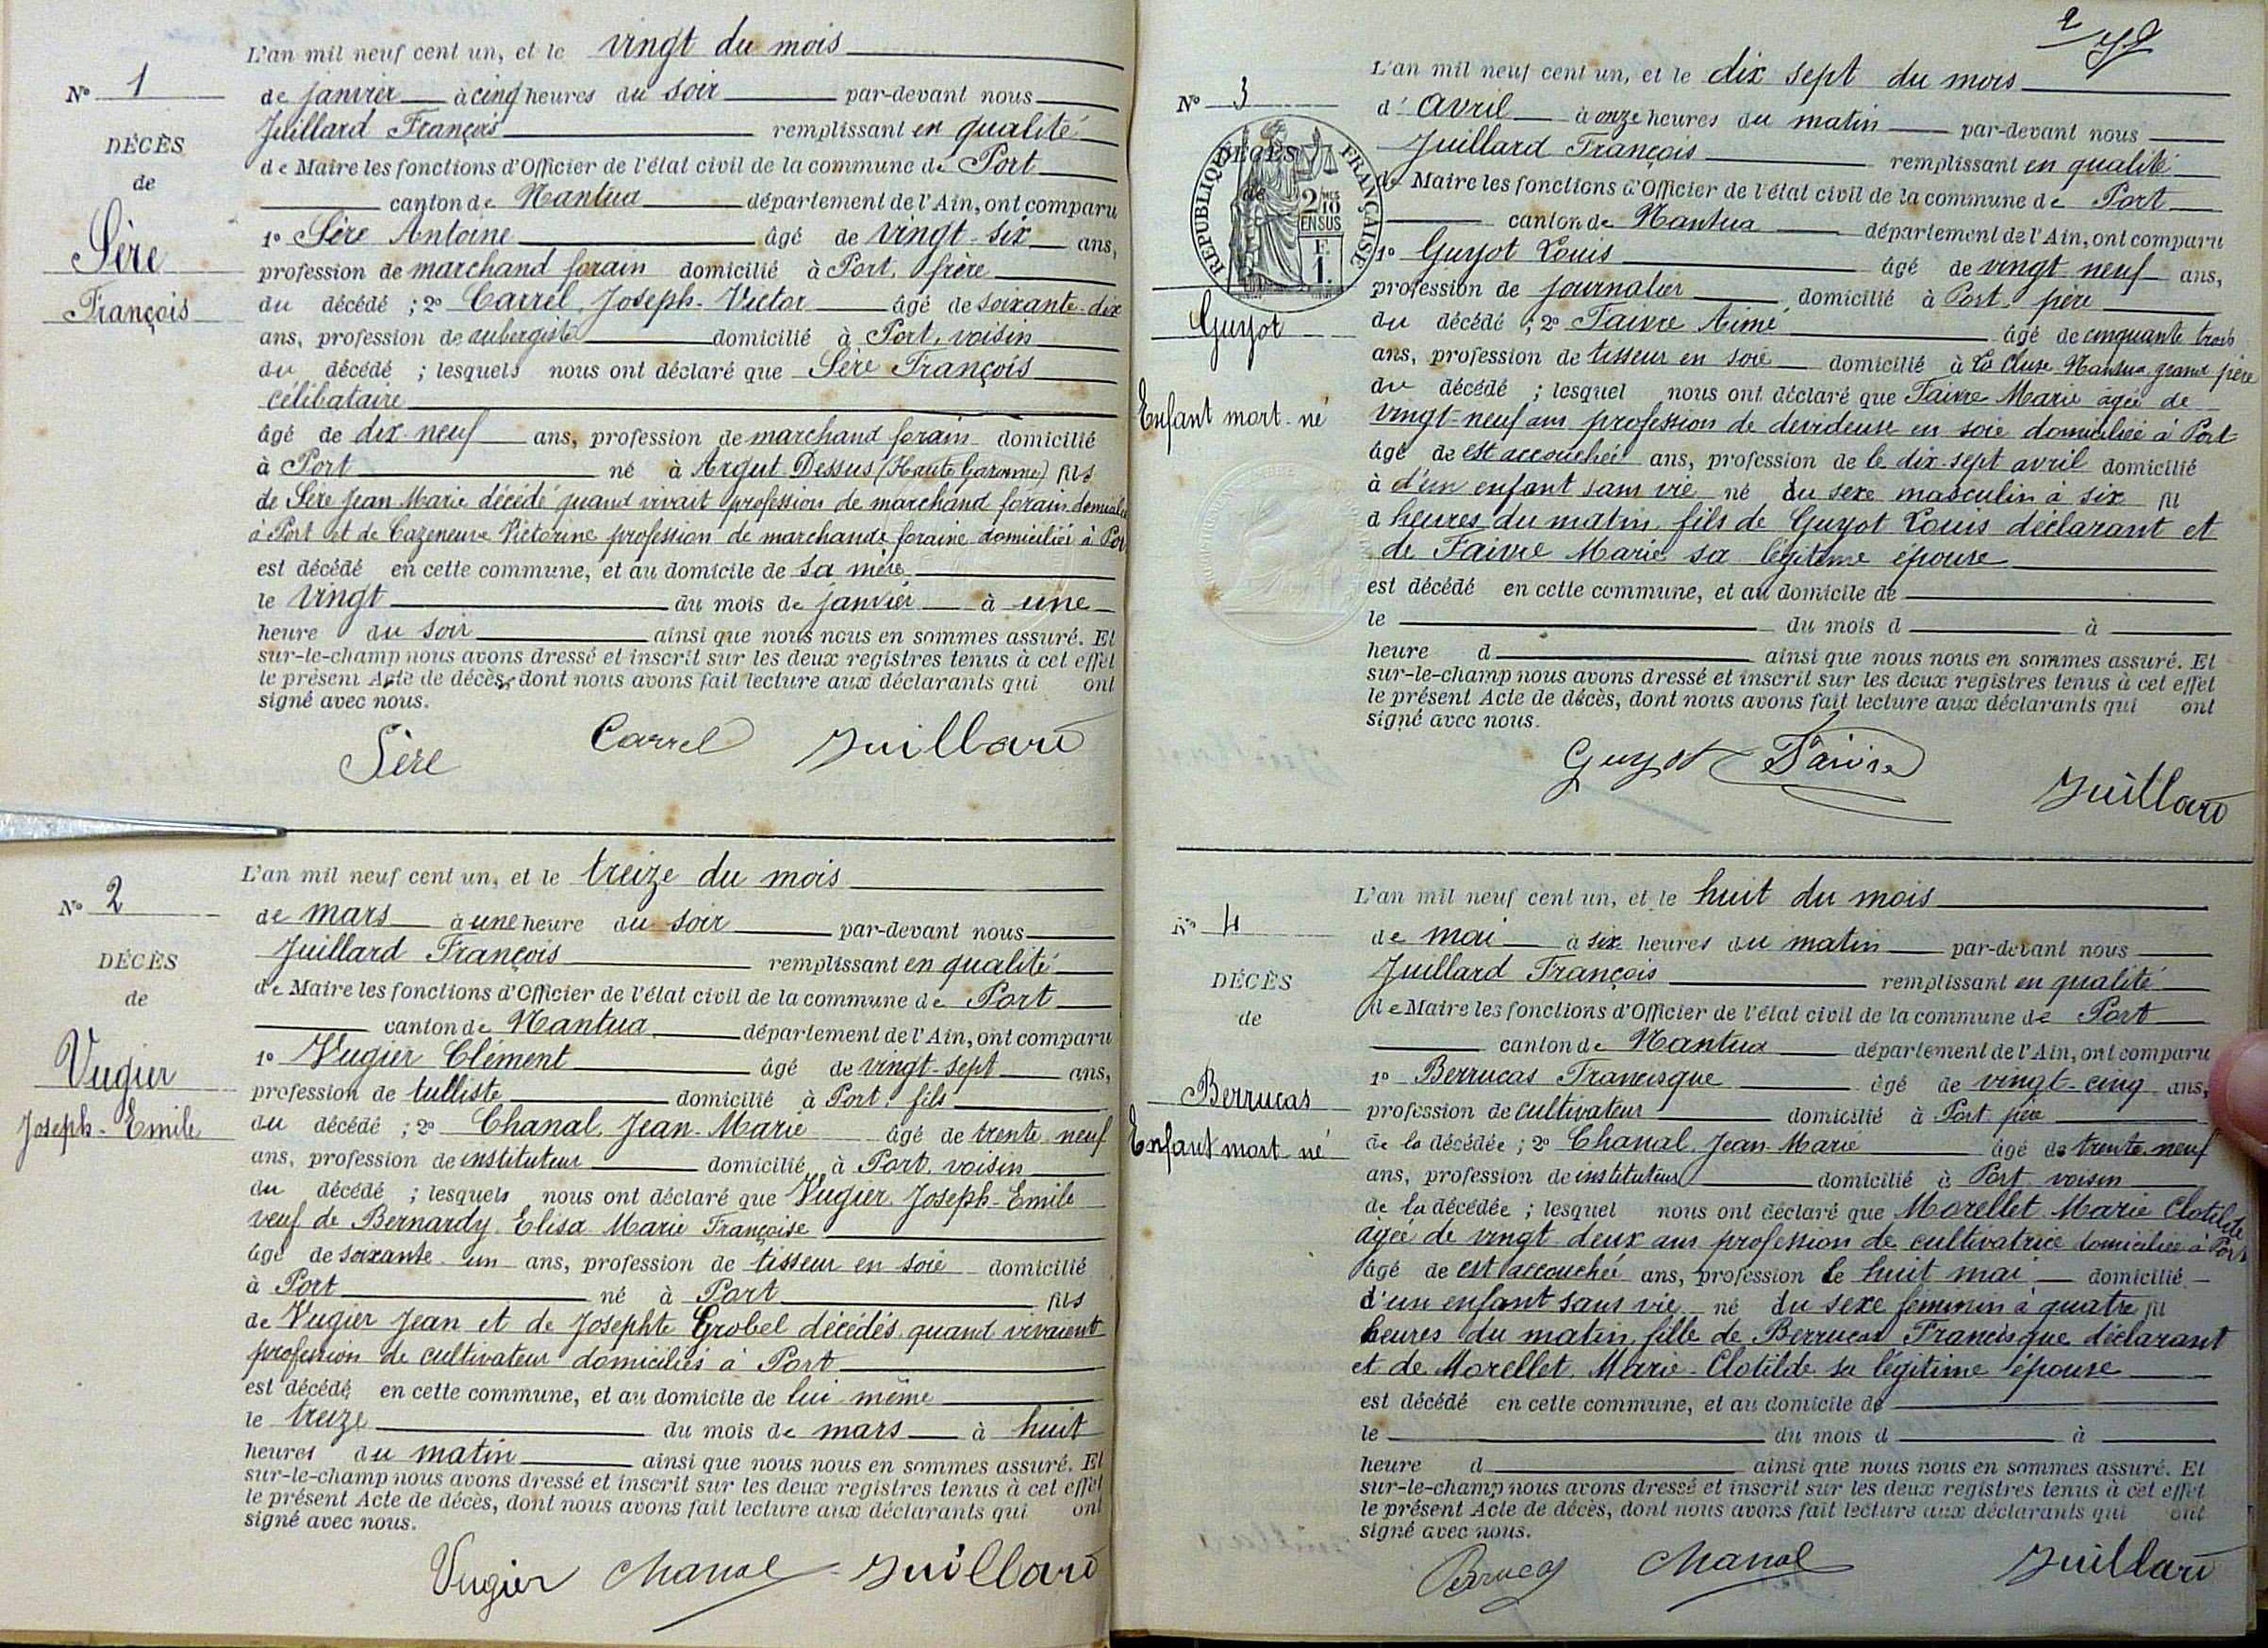 L'an mil neuf cent un, et le vingt du mois
N° 1
de janvier à cinq heures du soir par-devant nous
Juillard François remplissant en qualité
DÉCÈS
de Maire les fonctions d'Officier de l'état civil de la commune de Port
de
canton de Nantua département de l'Ain, ont comparu
Sère
1° Sère Antoine âgé de vingt-six ans,
profession de marchand forain domicilié à Port, frère
François
du décédé ; 2° Carrel, Joseph-Victor âgé de soixante-dix
ans, profession de aubergiste domicilié à Port, voisin
du décédé ; lesquels nous ont déclaré que Sère François
célibataire
âgé de dix-neuf ans, profession de marchand forain domicilié
à Port né à Argut-Dessus (Haute Garonne) fils
de Sère Jean Marie décédé quand vivait profession de marchand forain domicilié
à Port et de Cazeneuve Victorine profession de marchande foraine domiciliée à Port
est décédé en cette commune, et au domicile de sa mère
le vingt du mois de janvier à une
heure du soir ainsi que nous nous en sommes assuré. Et
sur-le-champ nous avons dressé et inscrit sur les deux registres tenus à cet effet
le présent Acte de décès, dont nous avons fait lecture aux déclarants qui ont
signé avec nous.
Sère Carrel Juillard
L'an mil neuf cent un, et le treize du mois
N° 2
de mars à une heure du soir par-devant nous
Juillard François remplissant en qualité
DÉCÈS
de Maire les fonctions d'Officier de l'état civil de la commune de Port
de
canton de Nantua département de l'Ain, ont comparu
Vugier
1° Vugier Clément âgé de vingt-sept ans,
profession de tulliste domicilié à Port, fils
Joseph-Emile
du décédé ; 2° Chanal, Jean-Marie âgé de trente-neuf
ans, profession de instituteur domicilié à Port, voisin
du décédé ; lesquels nous ont déclaré que Vugier, Joseph-Emile
veuf de Bernardy, Elisa Marie Françoise
âgé de soixante-un ans, profession de tisseur en soie domicilié
à Port né à Port fils
de Vugier Jean et de Josephte Grobel décédés quand vivaient
profession de cultivateur domiciliés à Port
est décédé en cette commune, et au domicile de lui même
le treize du mois de mars à huit
heures du matin ainsi que nous nous en sommes assuré. Et
sur-le-champ nous avons dressé et inscrit sur les deux registres tenus à cet effet
le présent Acte de décès, dont nous avons fait lecture aux déclarants qui ont
signé avec nous.
Vugier Chanal Juillard
2
L'an mil neuf cent un, et le dix sept du mois
N° 3
d'avril à onze heures du matin par-devant nous
Juillard François remplissant en qualité
DÉCÈS
de
RÉPUBLIQUE FRANÇAISE
2/10 MES EN SUS
F. 1.
de Maire les fonctions d'Officier de l'état civil de la commune de Port
canton de Nantua département de l'Ain, ont comparu
1° Guyot Louis âgé de vingt neuf ans,
profession de journalier domicilié à Port père
Guyot
du décédé ; 2° Faivre Aimé âgé de cinquante trois
ans, profession de tisseur en soie domicilié à La Cluse-Nantua grand père
du décédé ; lesquel nous ont déclaré que Faivre Marie âgée de
Enfant mort-né
vingt-neuf ans profession de devideuse en soie domiciliée à Port
âgé de est accouchée ans, profession de le dix-sept avril domicilié
à d'un enfant sans vie né du sexe masculin à six fil
d heures du matin fils de Guyot Louis déclarant et
de Faivre Marie sa légitime épouse
est décédé en cette commune, et au domicile de
le du mois d à
heure d ainsi que nous nous en sommes assuré. Et
sur-le-champ nous avons dressé et inscrit sur les deux registres tenus à cet effet
le présent Acte de décès, dont nous avons fait lecture aux déclarants qui ont
signé avec nous.
Guyot Faivre Juillard
L'an mil neuf cent un, et le huit du mois
N° 4
de mai à six heures du matin par-devant nous
Juillard François remplissant en qualité
DÉCÈS
de Maire les fonctions d'Officier de l'état civil de la commune de Port
de
canton de Nantua département de l'Ain, ont comparu
1° Berrucas Francisque âgé de vingt-cinq ans,
Berrucas
profession de cultivateur domicilié à Port père
Enfant mort-né
de la décédée ; 2° Chanal, Jean-Marie âgé de trente-neuf
ans, profession de instituteur domicilié à Port voisin
de la décédée ; lesquel nous ont déclaré que Morellet Marie Clotilde
âgée de vingt-deux ans profession de cultivatrice domiciliée à Port
âgé de est accouchée ans, profession le huit mai domicilié
d'un enfant sans vie né du sexe féminin à quatre fil
heures du matin, fille de Berrucas Francisque déclarant
et de Morellet, Marie-Clotilde sa légitime épouse
est décédé en cette commune, et au domicile de
le du mois d à
heure d ainsi que nous nous en sommes assuré. Et
sur-le-champ nous avons dressé et inscrit sur les deux registres tenus à cet effet
le présent Acte de décès, dont nous avons fait lecture aux déclarants qui ont
signé avec nous.
Chanal Juillard